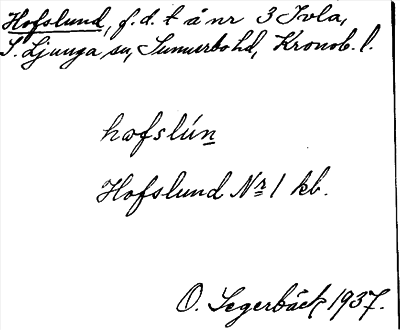 Hofslund, f.d. t å nr 3 Ivla,
S. Ljunga sn, Sunnerbo hd, Kronob. l.
hofslún
Hofslund Nr 1 kb.
O. Segerbäck 1937.